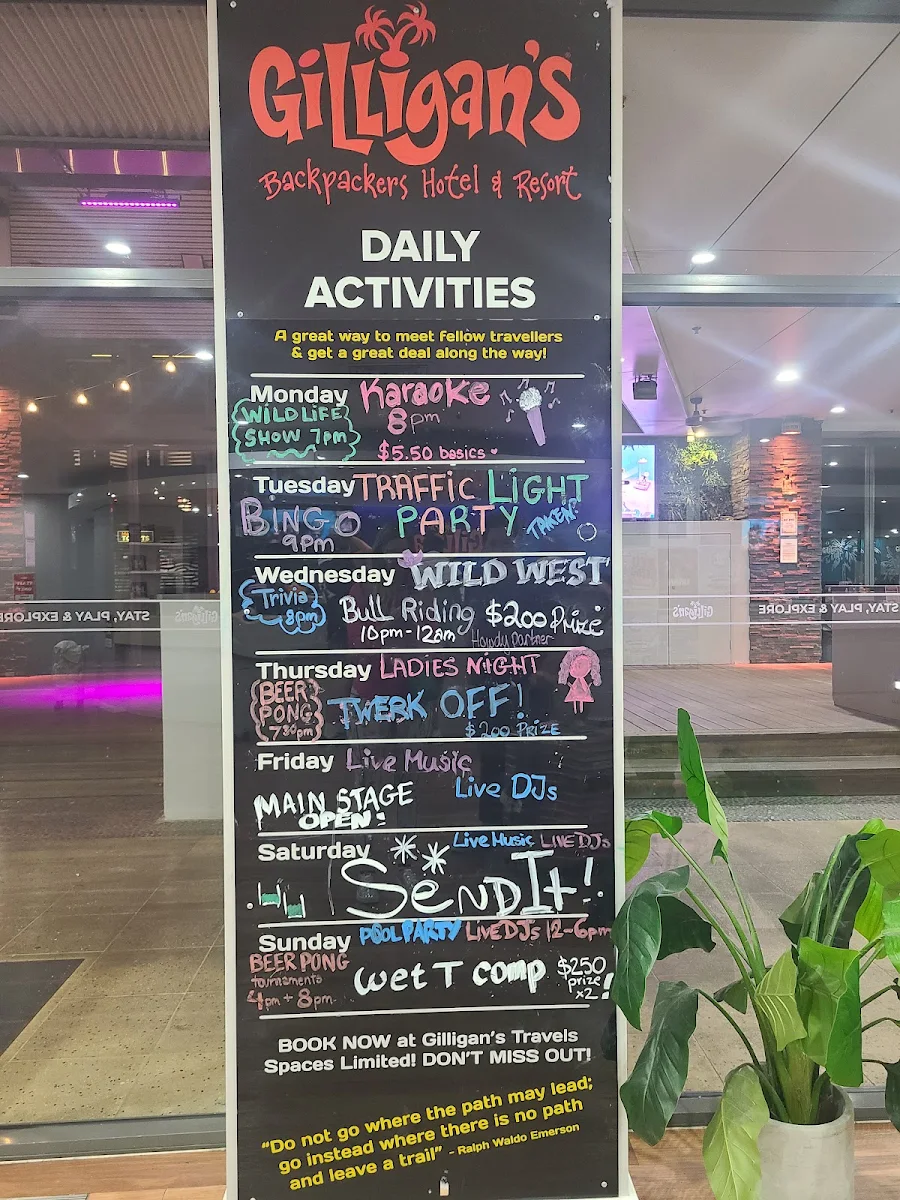 GiLLigan's
Backpackers Hotel & Resort
DAILY
ACTIVITIES
A great way to meet fellow travellers
& get a great deal along the way!
Monday Karaoke
WILDLIFE 8pm
SHOW 7pm
$5.50 basics
Tuesday TRAFFIC LIGHT
BINGO PARTY TAKEN?
9pm
Wednesday WILD WEST
Trivia Bull Riding $200 Prize
8pm 10pm-12am Howdy Partner
Thursday LADIES NIGHT
BEER
PONG TWERK OFF!
730pm $200 PRIZE
Friday Live Music
MAIN STAGE Live DJs
OPEN!
Saturday Live Music LIVE DJs
SEND It!
Sunday POOL PARTY LIVE DJs 12-6pm
BEER PONG
tournaments wet T comp $250
4pm + 8pm prize
x2!
BOOK NOW at Gilligan's Travels
Spaces Limited! DON'T MISS OUT!
"Do not go where the path may lead;
go instead where there is no path
and leave a trail" - Ralph Waldo Emerson
STAY, PLAY & EXPLORE
GiLLigan's
GiLLigan's
STAY, PLAY & EXPLORE